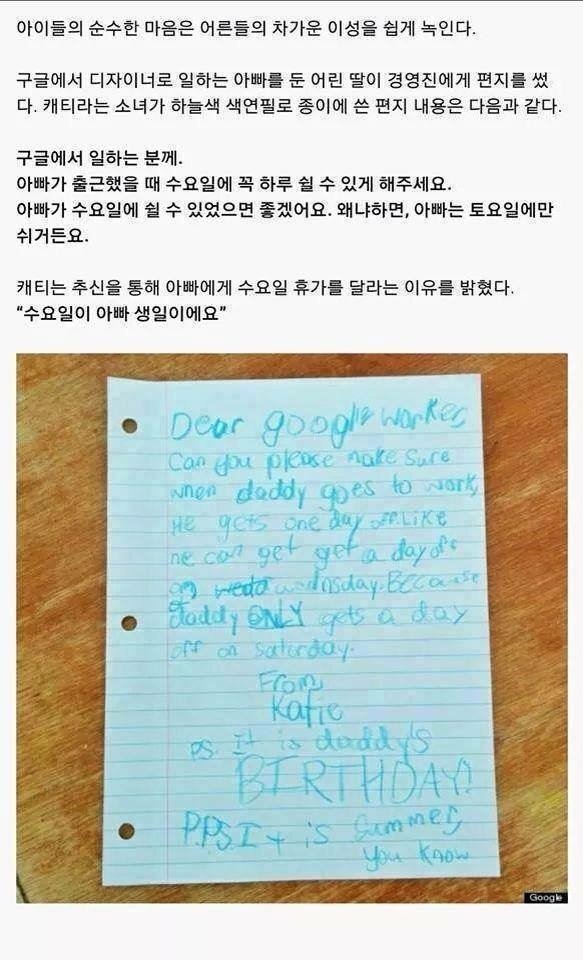 아이들의 순수한 마음은 어른들의 차가운 이성을 쉽게 녹인다.
구글에서 디자이너로 일하는 아빠를 둔 어린 딸이 경영진에게 편지를 썼
다. 캐티라는 소녀가 하늘색 색연필로 종이에 쓴 편지 내용은 다음과 같다.
구글에서 일하는 분께.
아빠가 출근했을 때 수요일에 꼭 하루 쉴 수 있게 해주세요.
아빠가 수요일에 쉴 수 있었으면 좋겠어요. 왜냐하면, 아빠는 토요일에만
쉬거든요.
캐티는 추신을 통해 아빠에게 수요일 휴가를 달라는 이유를 밝혔다.
“수요일이 아빠 생일이에요”
Dear google worker,
Can you please make sure
when daddy goes to work,
He gets one day off. Like
he can get get a day off
on wednsday. Because
daddy ONLY gets a day
off on Saturday.
From,
Katie
P.S. It is daddy's
BIRTHDAY!
P.P.S. It is Summer,
you know
Google